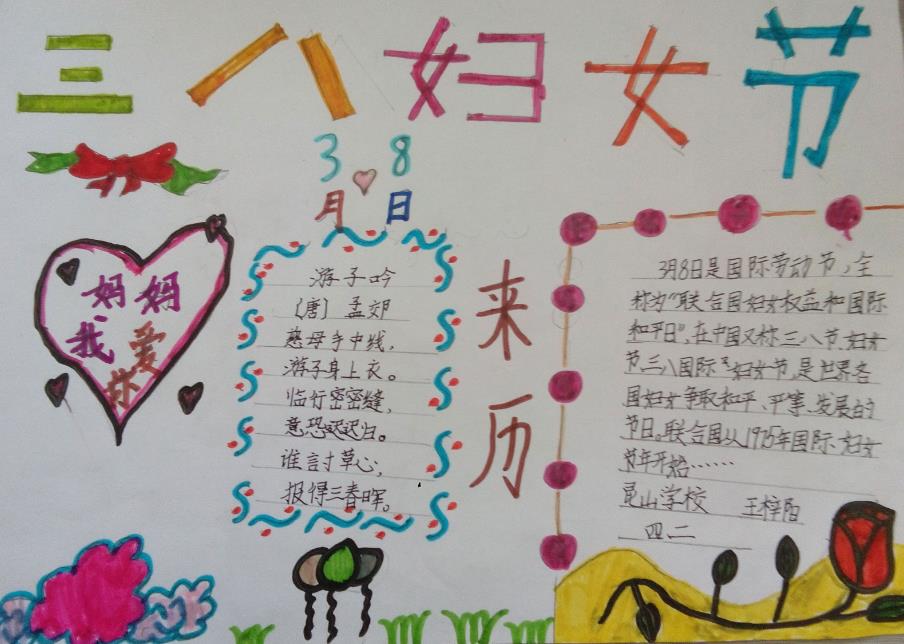 三八妇女节
3月8日
妈妈
我爱
你
游子吟
(唐) 孟郊
慈母手中线,
游子身上衣。
临行密密缝,
意恐迟迟归。
谁言寸草心,
报得三春晖。
来历
3月8日是国际劳动节,全
称为“联合国妇女权益和国际
和平日”,在中国又称三八节、妇女
节、三八国际妇女节,是世界各
国妇女争取和平、平等、发展的
节日。联合国从1975年国际妇女
节年开始……
昆山学校 王梓阳
四二